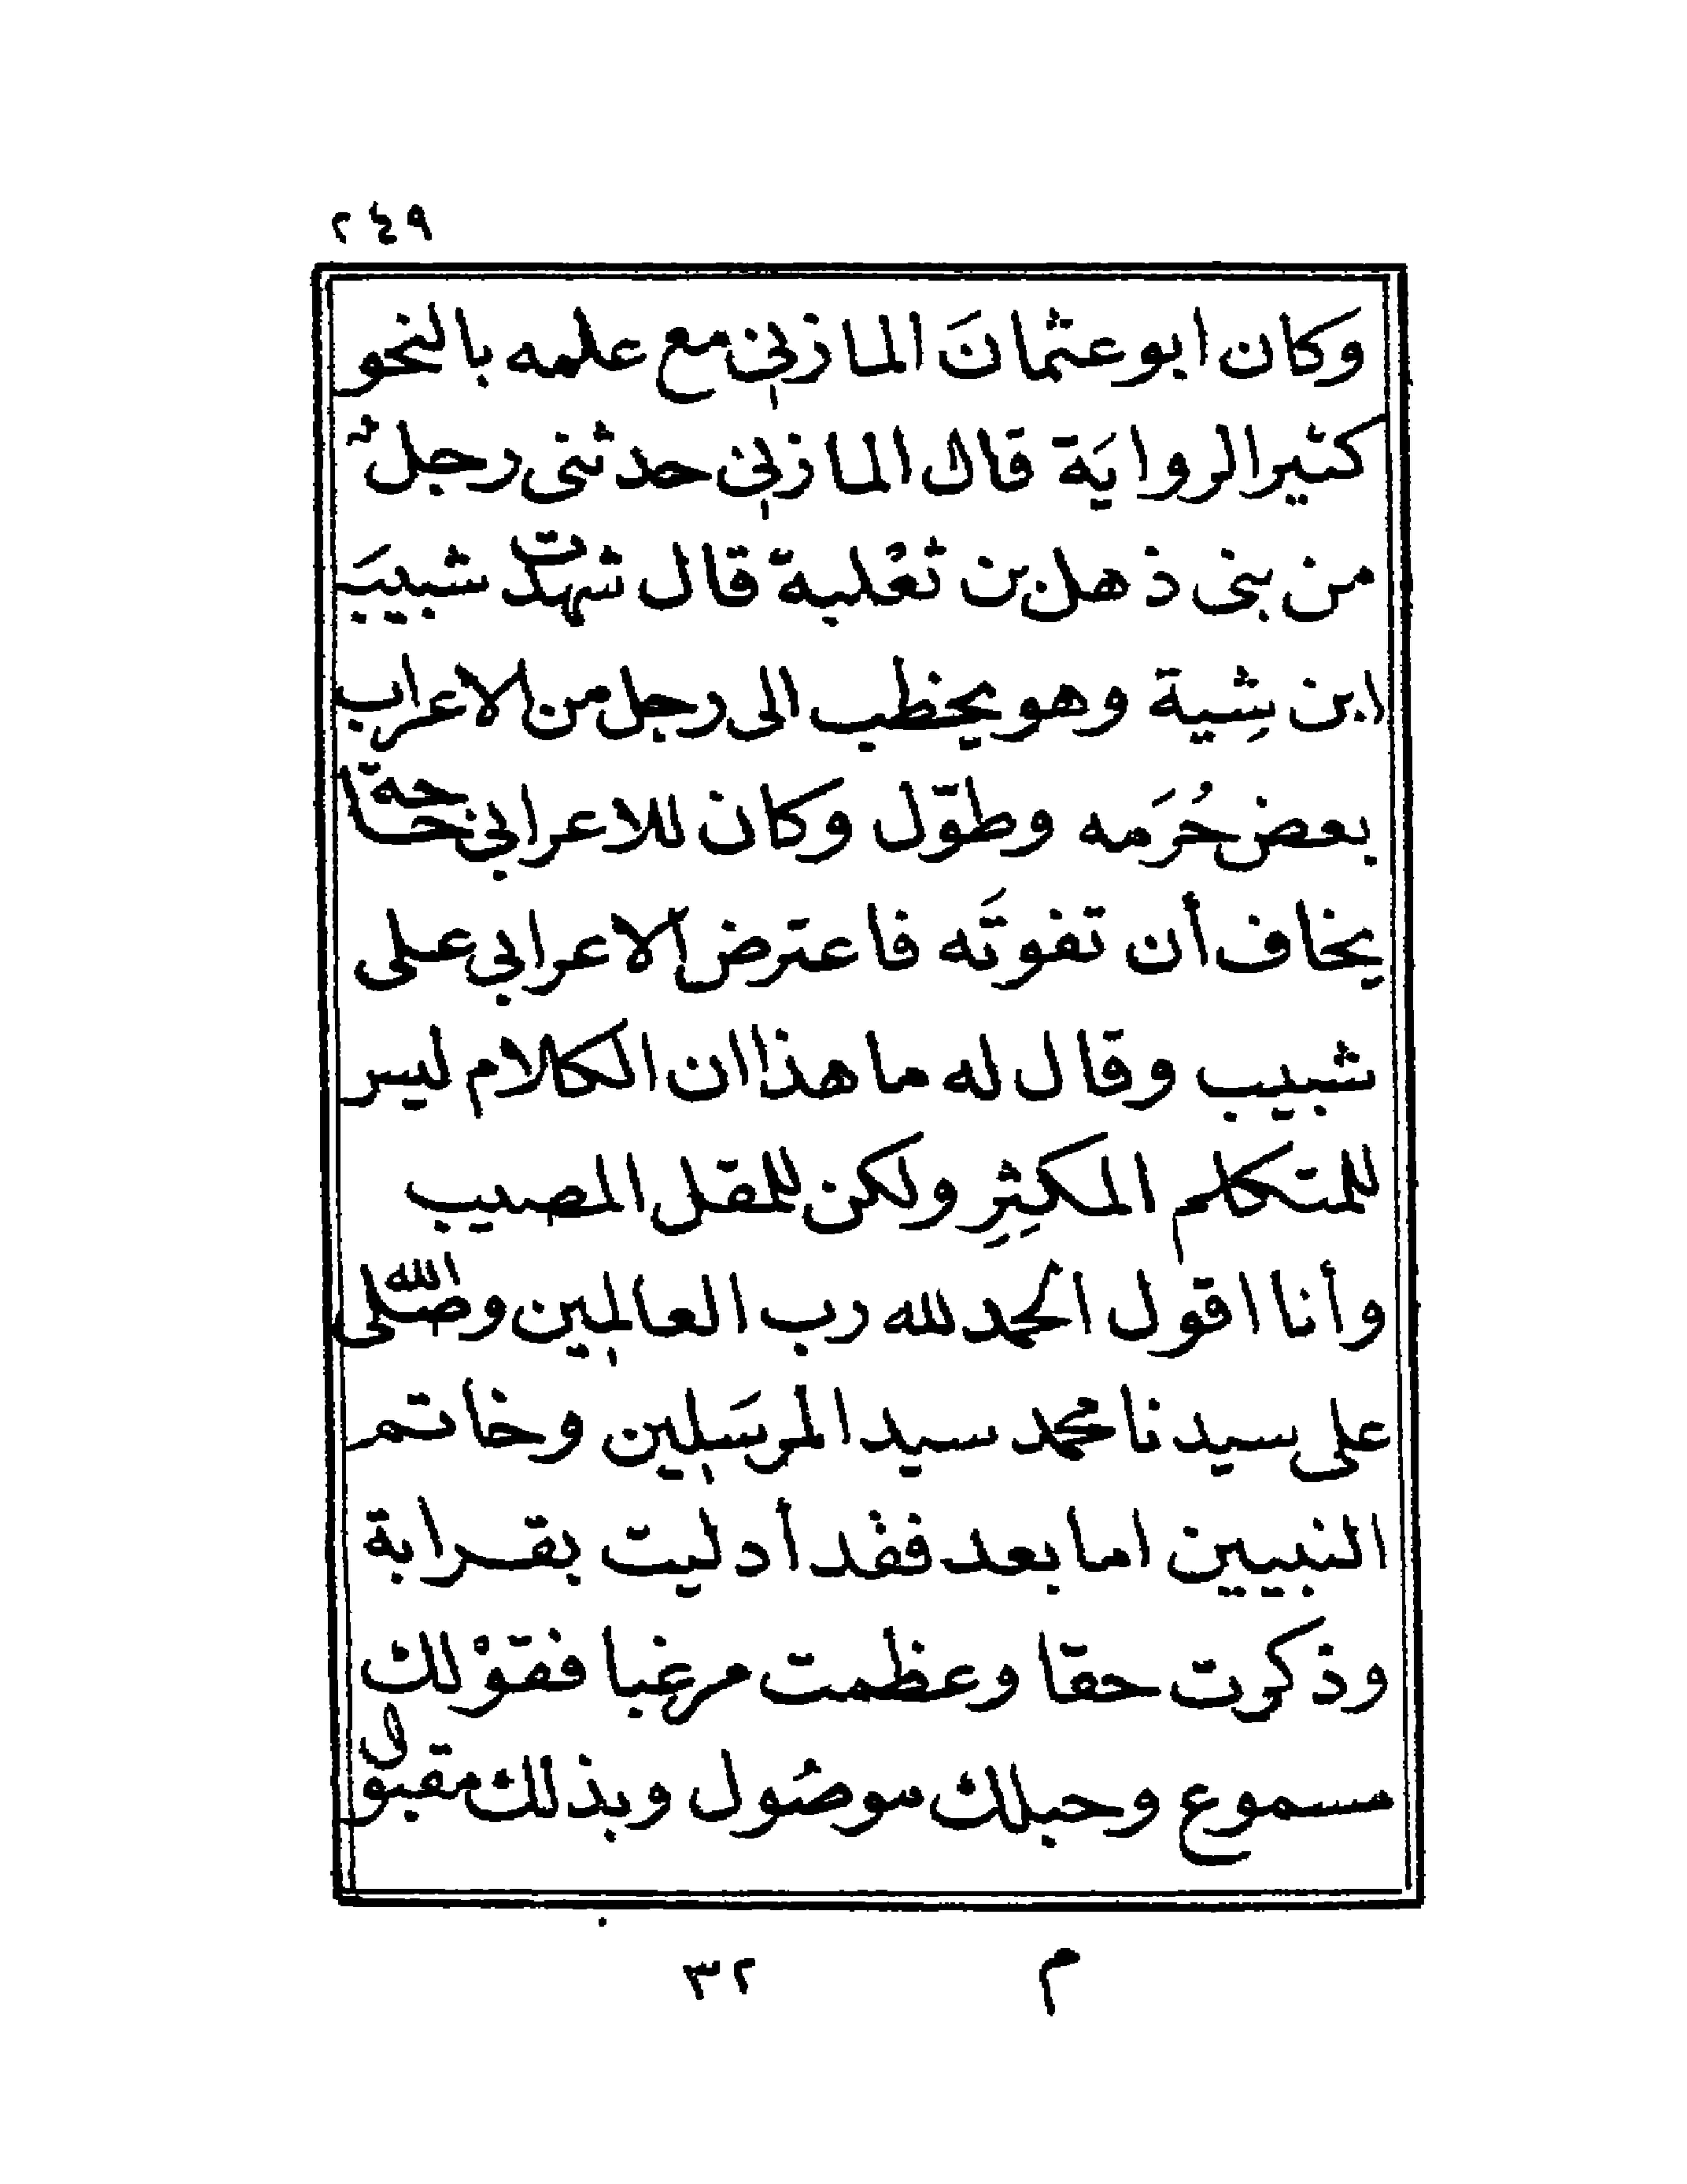 ٢٤٩
وكان ابو عثمانَ المازني مع علمه بالنحو
كثير الروايَة قال المازني حدثنى رجلٌ
من بنى ذهل بن ثعْلبة قال شهدت شبيبَ
ابن شِيبة وهو يخطب الى رجل من الاعراب
بعض حُرَمه وطوّل وكان للاعرابي حاجة
يخاف أن تفوتَه فاعترض الاعرابي على
شبيب وقال له ما هذا ان الكلام ليس
للمتكلم المكثِرِ ولكن للمقل المصيب
وأنا اقول الحمد لله رب العالمين وصلى الله
على سيدنا محمد سيد المرسَلين وخاتم
النبيين اما بعد فقد أدليت بقرابة
وذكرت حقا وعظمت مرغبا فقوْلك
مسموع وحبلك موصُول وبذلك مقبول
م ٣٢